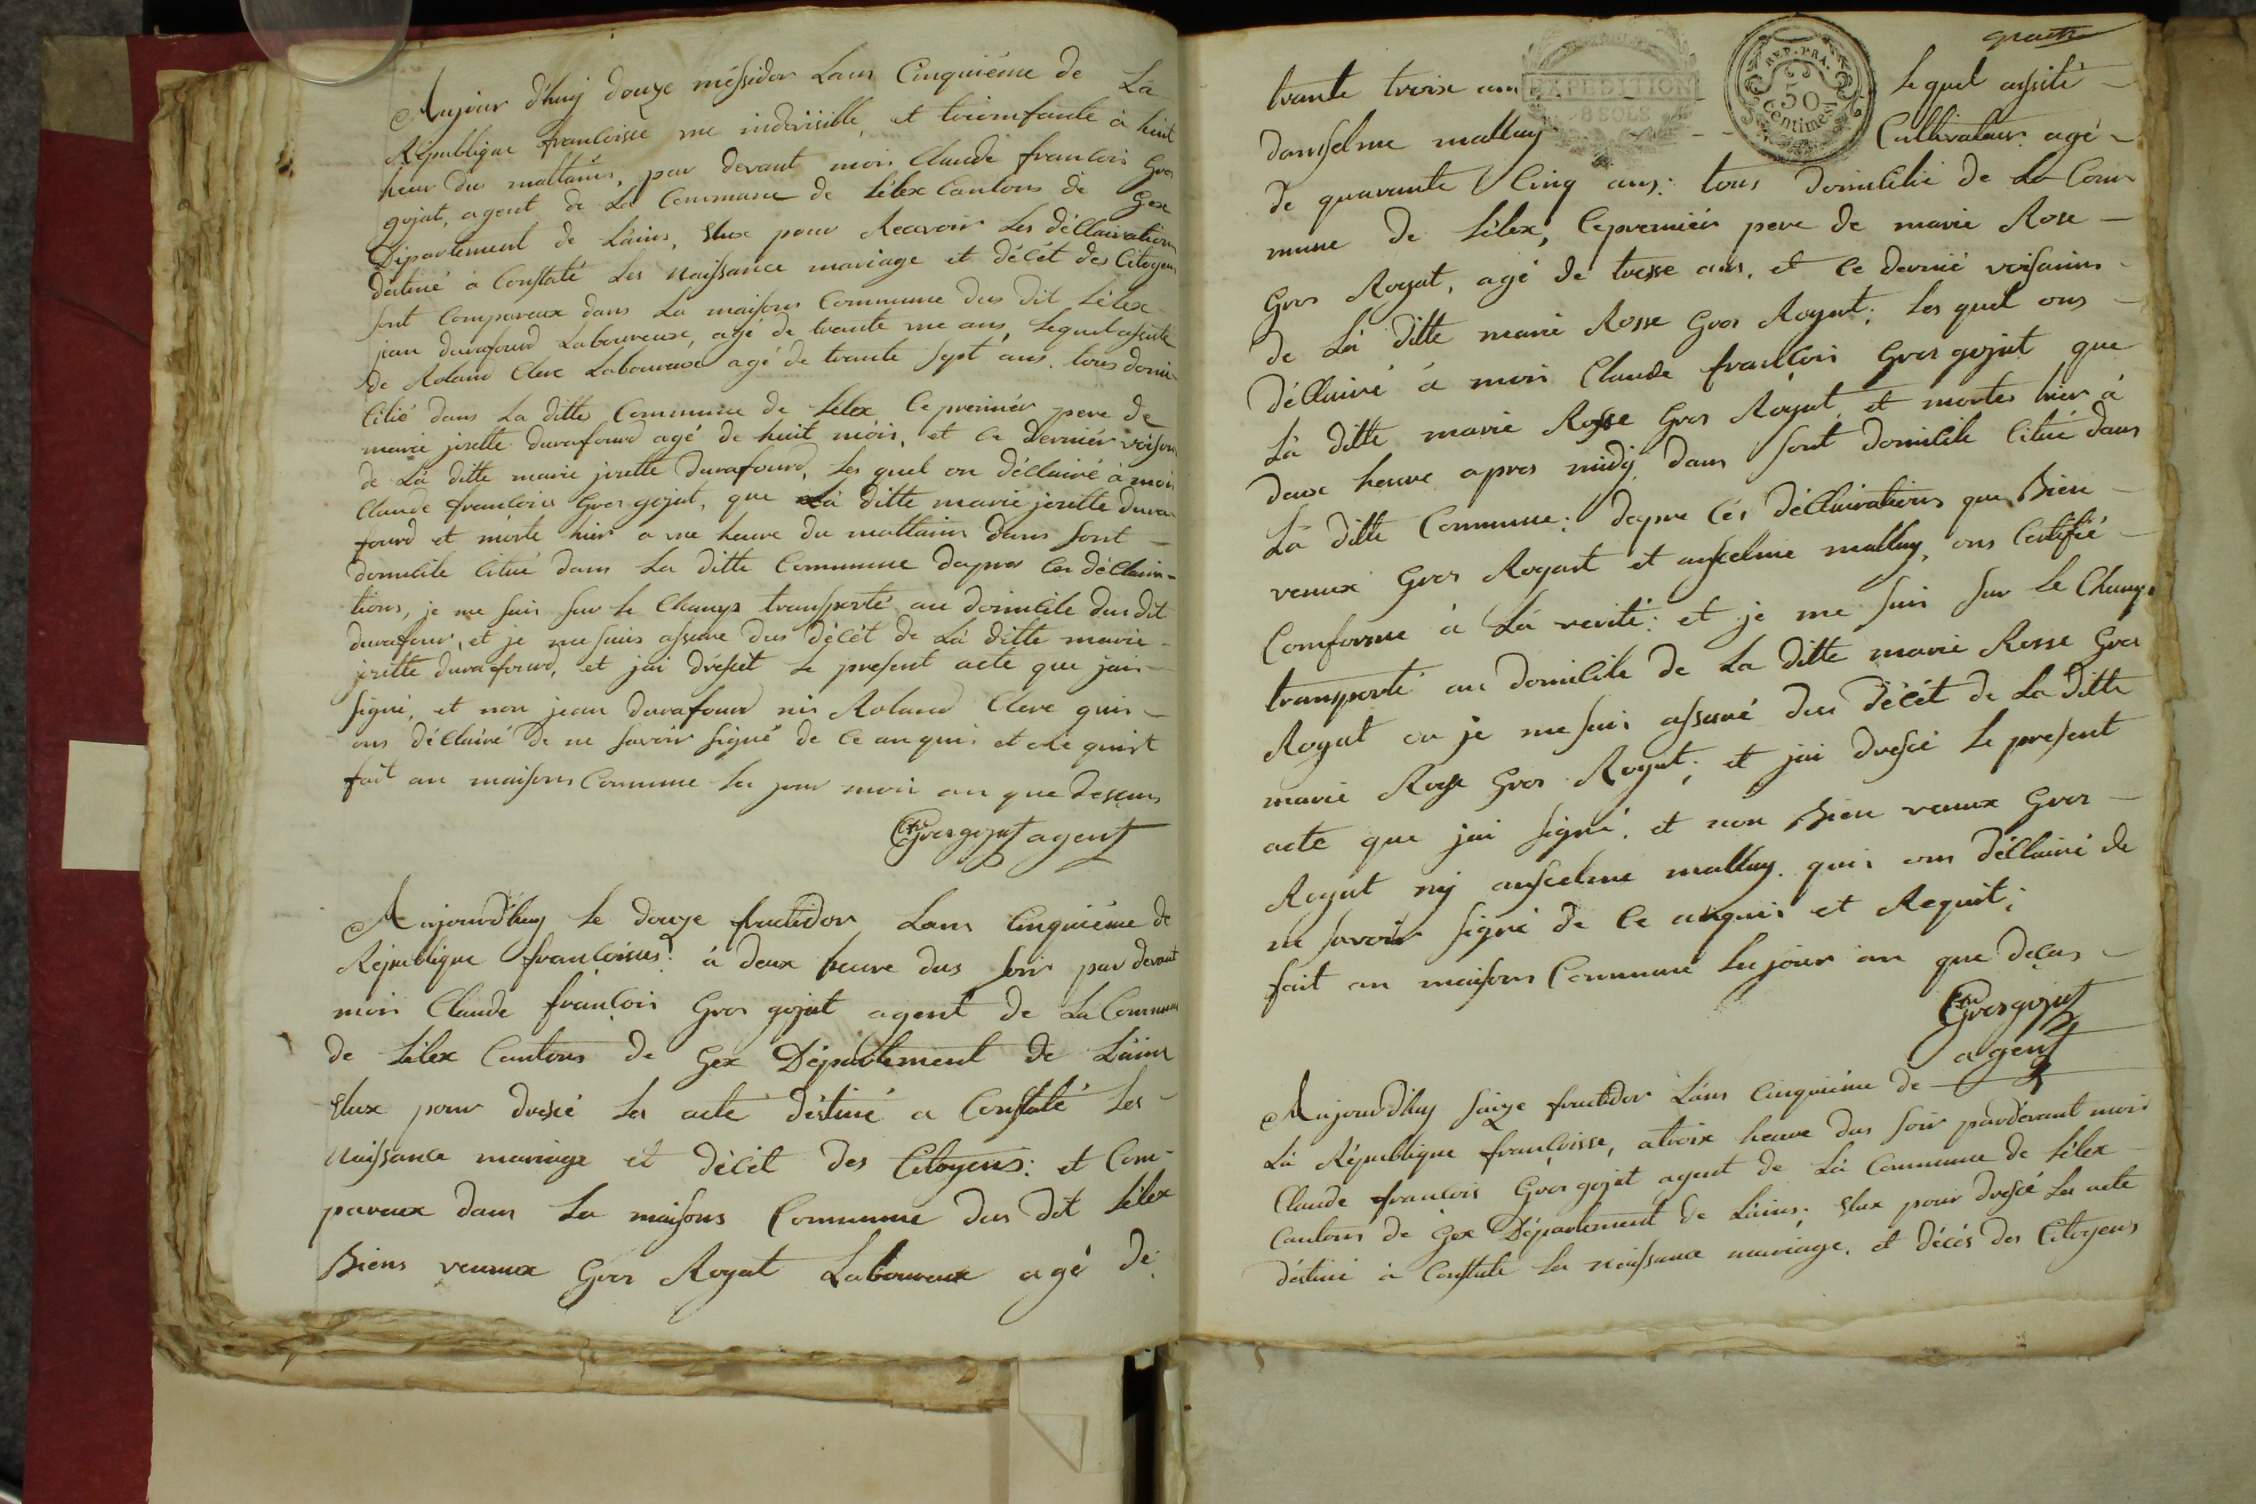 Aujour d'huy douze méssidor Lans Cinquiéme de La
République francoisse une indivisible, et triomfante à huit
heur du mattains, par devant moi Claude francois Gros
gojat, agent de La Commune de Lélex Cantons de Gex
Département de Lains, Elux pour Recevoir Les déClairations
déstiné à Constaté Les Naissance mariage et décét des Citoyens
sont Comparaux dans La maisons Commune dus dit Lélex
jean durafourd Laboureux, agé de trante une ans, Lequel assité
de Roland Clerc Laboureux agé de trante sept ans. tous domi-
Cilié dans La ditte Commune de Lélex Ce premiér pere de
marie josette durafourd agé de huit mois, et Ce derniér voisin
de La ditte marie josette durafourd, Les quel on déClairé à moi
Claude francois Gros gojat, que La ditte marie josette dura-
fourd et morte hier a une heure du mattains dans sont
domicile Citué dans La ditte Commune dapres Ces déClaira-
tions, je me suis sur le Champs transporté au domicile dus dit
durafour, et je me suis assure dus décét de La ditte marie
josette durafourd, et jai dréssét Le present acte que jai
signé, et non jean durafourd nis Roland Clerc quis
ons déClairé de ne savoir signé de Ce anquis et Réquist
fait an maisons Commune Les jour mois an que desçus
Gros gojat agent
Aujourd'huy Le douze fructidor Lans Cinquiéme de
République francoisse à deux heure dus soir par devant
moi Claude françois Gros gojat agent de La Commune
de Lélex Cantons de Gex Département de Lains
Elux pour dressé Les acte déstiné a Constaté Les
Naissance mariage et décét des Citoyens: et Com-
paraux dans La maisons Commune dus dit Lélex
Biens venux Gros Royat Laboureux agé de
quatre
trante troix ans Le quel assité
danselme mallay Cultivateur agé
de quarante Cinq ans: tous domicilié de La Com-
mune de Lélex, Ce premiér pere de marie Rose
Gros Royat, agé de tresse ans. et Ce dernié voisains
de La ditte marie Rosse Gros Royat; Les quel ons
déClairé à moi Claude françois Gros gojat que
La ditte marie Rosse Gros Royat et mortes hier à
deux heure apres midy dans sont domicile Citué dans
La ditte Commune: dapre Cés déClairations que Bien
venux Gros Royat et anselme mallay, ons Certifié
Comforme à La verité: et je me suis sur Le Champs
transporté au domicile de La ditte marie Rosse Gros
Royat ou je me suis assuré dus décét de La ditte
marie Rosse Gros Royat; et jai dressé Le present
acte que jai signé, et non Bien venux Gros
Royat nij anselme mallay quis ons déClairé de
ne savoir signé de Ce anquis et Requit;
fait an maisons Commune Les jour an que deçus
Gros gojat
agent
Aujourd'huy saize fructidor Lans Cinquiéme de
La République françoisse, a troix heure dus soir pardevant moi
Claude francois Gros gojat agent de La Commune de Lélex
Cantons de Gex Département de Lains; Elux pour dressé Les acte
déstiné à Constaté Les Naissance mariage, et décés des Citoyens
EXPEDITION
8 SOLS
REP. FRA.
50
Centimes